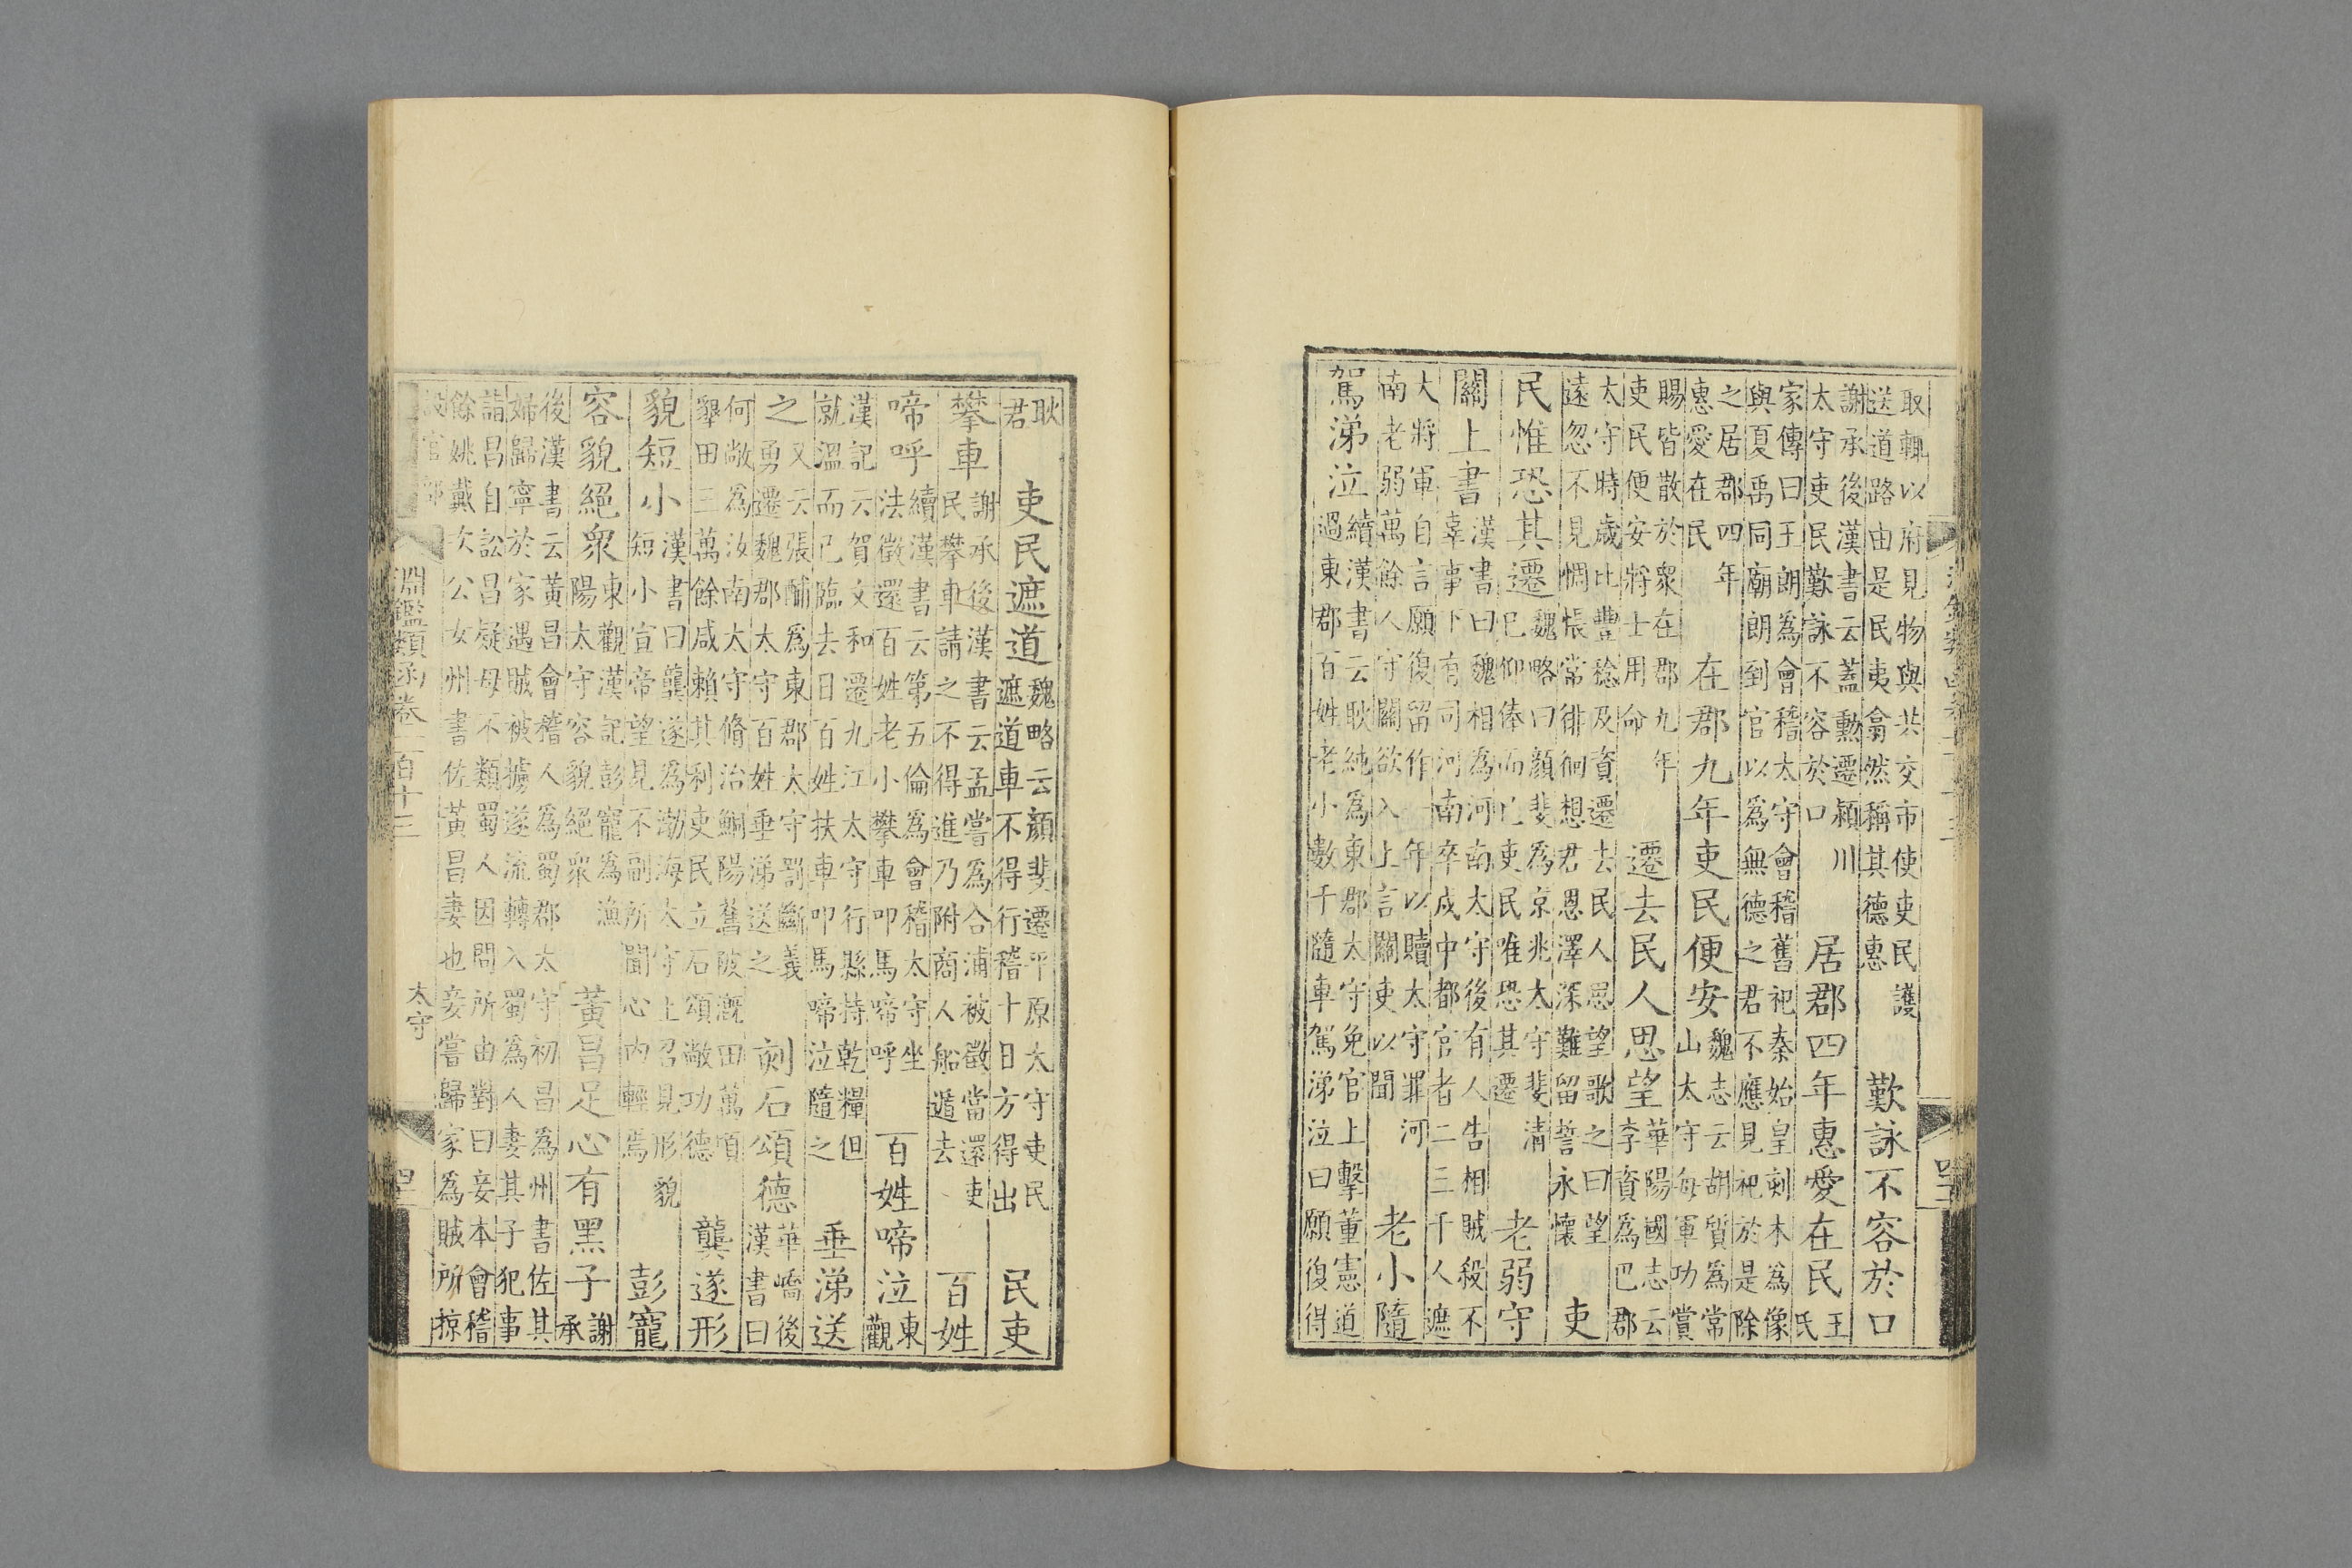 取輙以府見物與共交市使吏民護
送道路由是民夷翕然稱其德惠
歎詠不容於口
謝承後漢書云蓋勲遷潁川
太守吏民歎詠不容於口
居郡四年惠愛在民
王
氏
家傳曰王朗為會稽太守會稽舊祀秦始皇刻木為像
與夏禹同廟朗到官以為無德之君不應見祀於是除
之居郡四年
惠愛在民
在郡九年吏民便安
魏志云胡質為常
山太守每軍功賞
賜皆散於衆在郡九年
吏民便安將士用命
遷去民人思望
華陽國志云
李資為巴郡
太守時歲比豐稔及資遷去民人思望歌之曰望
遠忽不見惆悵常徘徊想君恩澤深難留誓永懷
吏
民惟恐其遷
魏略曰顔斐為京兆太守斐清
已仰俸而已吏民唯恐其遷
老弱守
關上書
漢書曰魏相為河南太守後有人告相賊殺不
辜事下有司河南卒戍中都官者二三千人遮
大將軍自言願復留作年以贖太守罪河
南老弱萬餘人守關欲入上言關吏以聞
老小隨
駕涕泣
續漢書云耿純為東郡太守免官上擊董憲道
過東郡百姓老小數千隨車駕涕泣曰願復得
耿
君
吏民遮道
魏略云顔斐遷平原太守吏民
遮道車不得行稽十日方得出
民吏
攀車
謝承後漢書云孟嘗為合浦被徵當還吏
民攀車請之不得進乃附商人船遁去
百姓
啼呼
續漢書云第五倫為會稽太守坐
法徵還百姓老小攀車叩馬啼呼
百姓啼泣
東
觀
漢記云賀文和遷九江太守行縣持乾糧但
就溫而已臨去日百姓扶車叩馬啼泣隨之
垂涕送
之
又云張酺為東郡太守罰斷義
勇遷魏郡太守百姓垂涕送之
刻石頌德
華嶠後
漢書曰
何敞為汝南太守脩治鮦陽舊陂漑田萬頃
墾田三萬餘咸賴其利吏民立石頌敞功德
龔遂形
貌短小
漢書曰龔遂為渤海太守上召見形貌
短小宣帝望見不副所聞心内輕焉
彭寵
容貌絕衆
東觀漢記彭寵為漁
陽太守容貌絕衆
黃昌足心有黑子
謝
承
後漢書云黃昌會稽人為蜀郡太守初昌為州書佐其
婦歸寧於家遇賊被擄遂流轉入蜀為人妻其子犯事
詣昌自訟昌疑母不類蜀人因問所由對曰妾本會稽
餘姚戴次公女州書佐黃昌妻也妾嘗歸家為賊所掠
設官部
淵鑑類函卷一百十三
太守